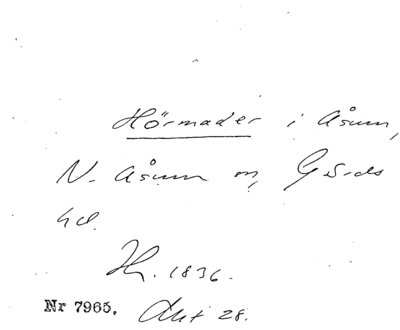 Hörmader i Åsum,
N. Åsum sn, Gärds
hd.
Hr. 1836.
Nr 7965. Akt 28.